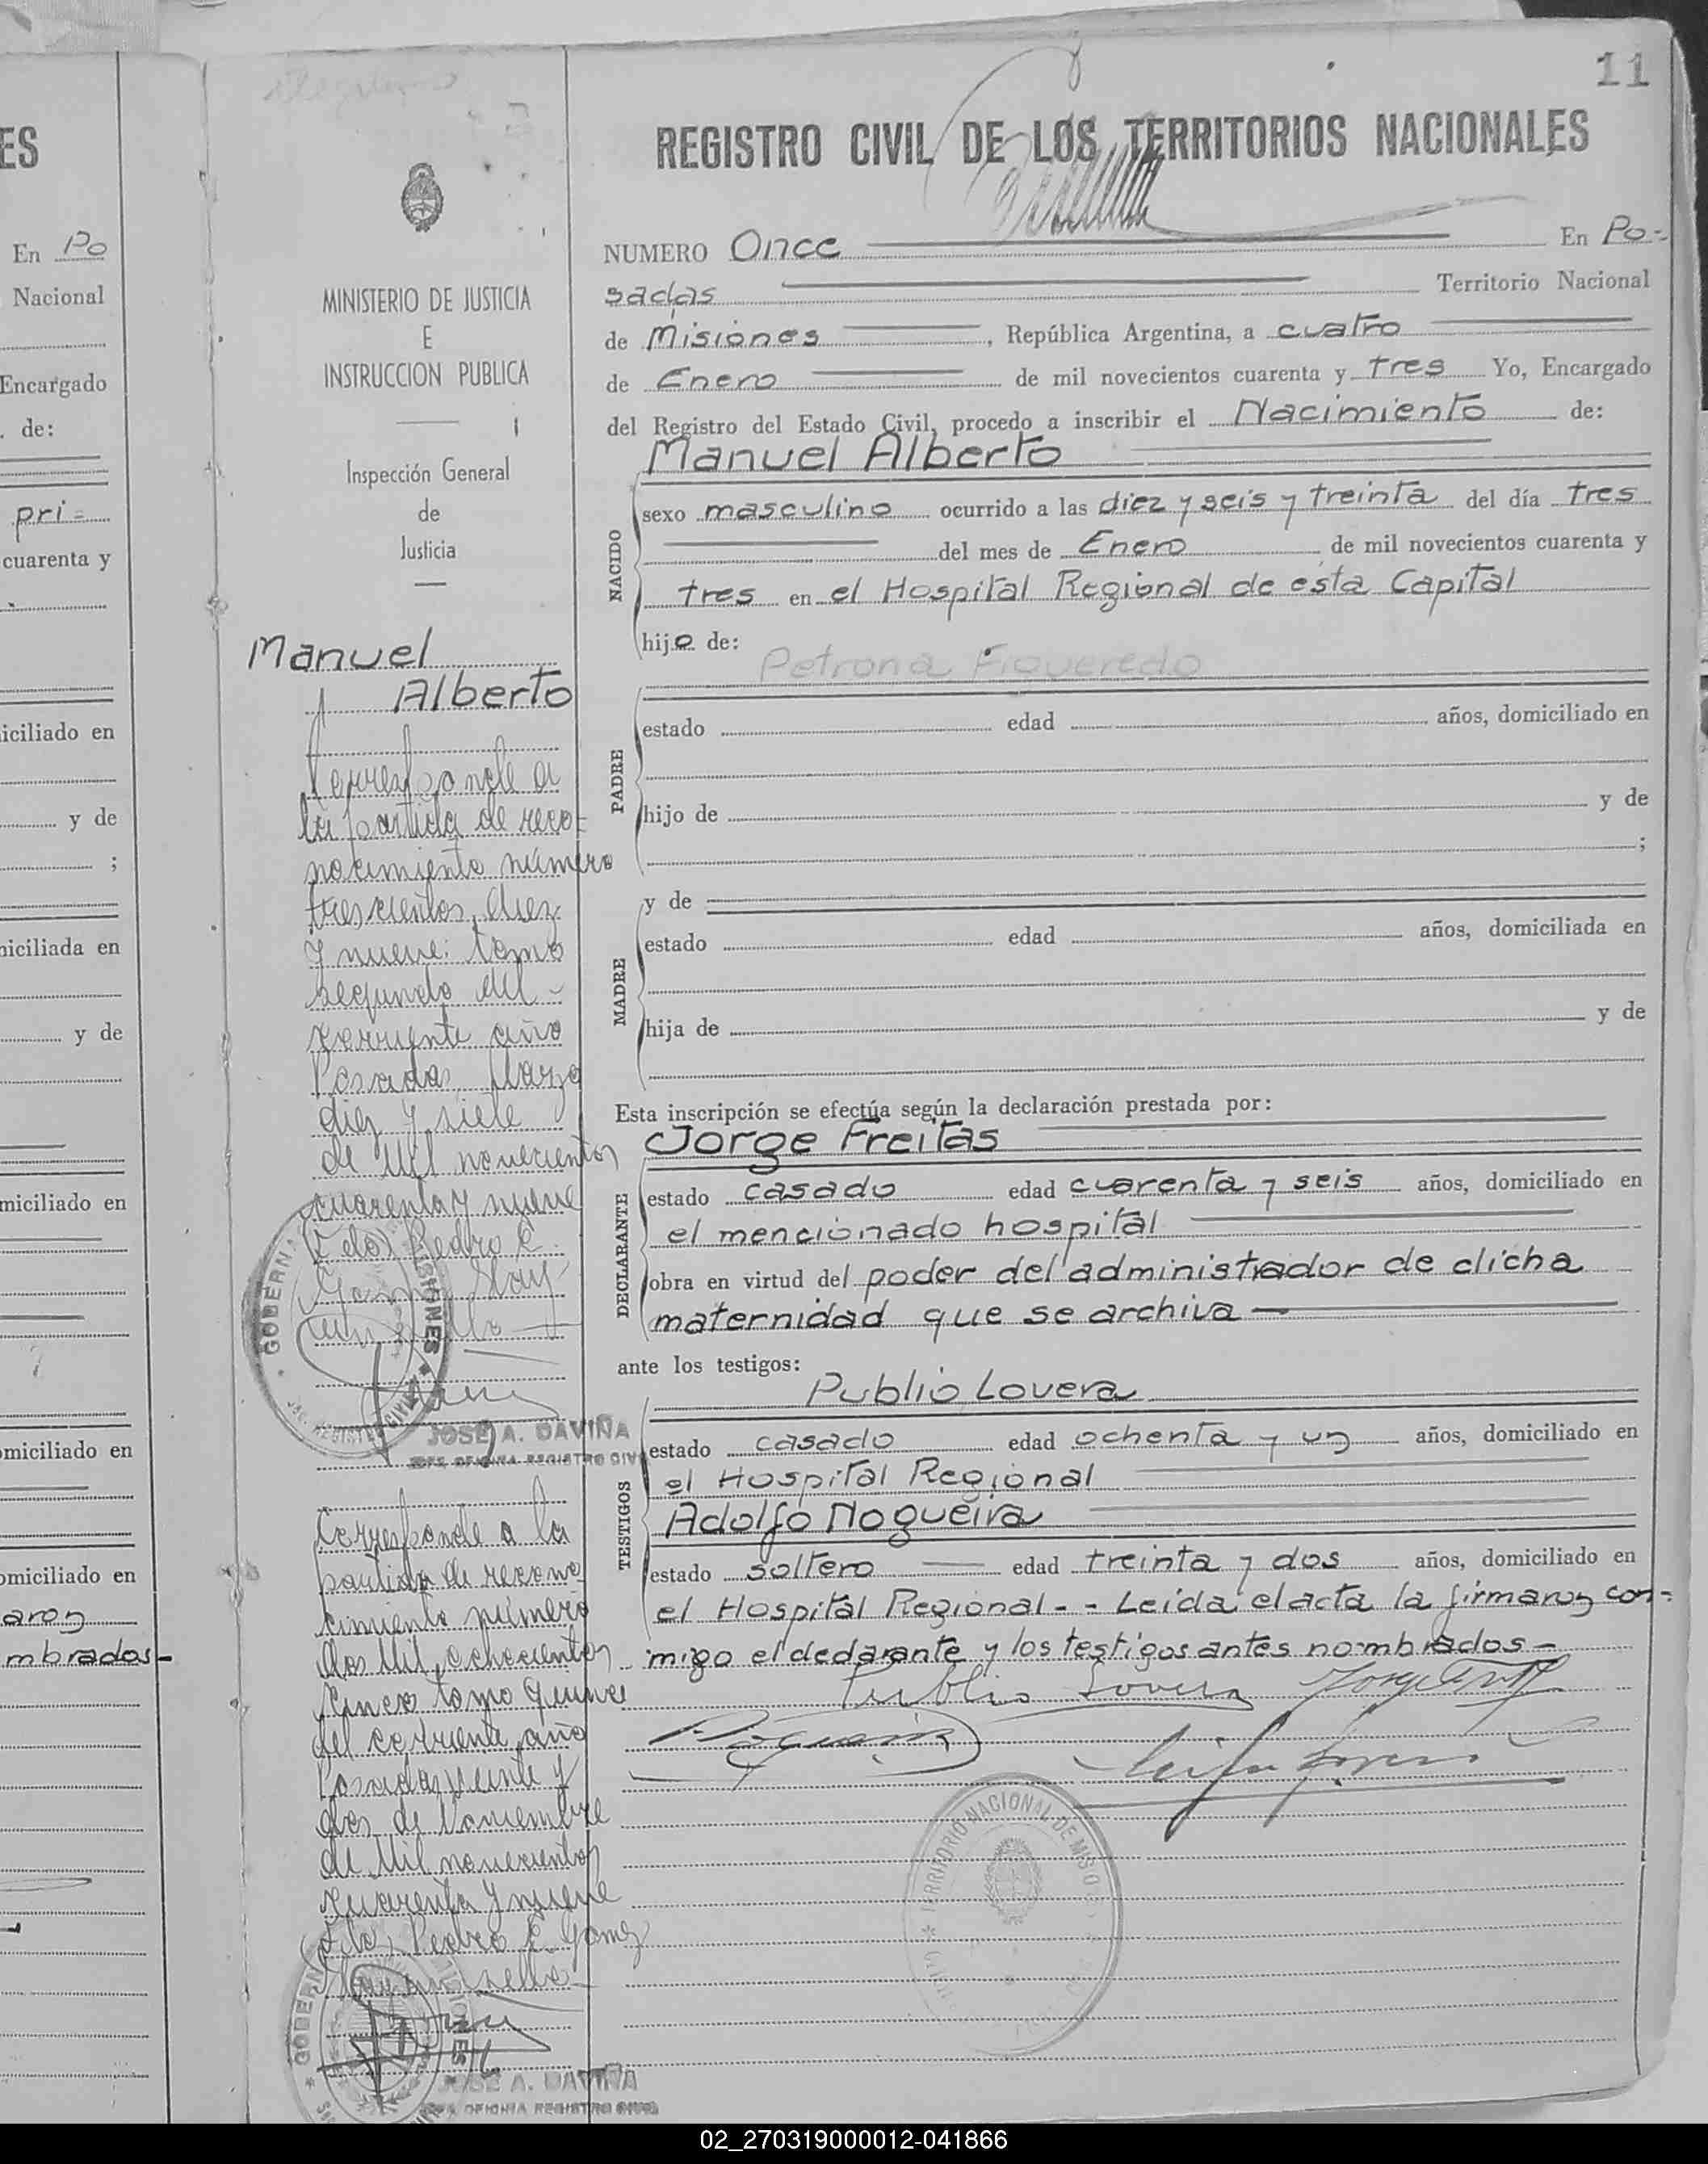 11
REGISTRO CIVIL DE LOS TERRITORIOS NACIONALES
NUMERO Once En Po-
sadas Territorio Nacional
de Misiones, República Argentina, a cuatro
de Enero de mil novecientos cuarenta y tres Yo, Encargado
del Registro del Estado Civil, procedo a inscribir el Nacimiento de:
Manuel Alberto
NACIDO
sexo masculino ocurrido a las diez y seis y treinta del día tres
del mes de Enero de mil novecientos cuarenta y
tres en el Hospital Regional de esta Capital
hijo de:
Petrona Figueredo
PADRE
estado edad años, domiciliado en
hijo de y de
;
y de
MADRE
estado edad años, domiciliada en
hija de y de
Esta inscripción se efectúa según la declaración prestada por:
Jorge Freitas
DECLARANTE
estado casado edad cuarenta y seis años, domiciliado en
el mencionado hospital
obra en virtud del poder del administrador de dicha
maternidad que se archiva
ante los testigos:
Publio Lovera
TESTIGOS
estado casado edad ochenta y un años, domiciliado en
el Hospital Regional
Adolfo Nogueira
estado soltero edad treinta y dos años, domiciliado en
el Hospital Regional - - Leida el acta la firmaron con-
migo el declarante y los testigos antes nombrados -
Publio Lovera
TERRITORIO NACIONAL DE MISIONES
MINISTERIO DE JUSTICIA
E
INSTRUCCION PUBLICA
Inspección General
de
Justicia
Manuel
Alberto
Corresponde a
la partida de reco-
nocimiento número
trescientos diez
y nueve: tomo
segundo del
corriente año
Posadas Marzo
diez y siete
de Mil novecientos
cuarenta y nueve
(Fdo) Pedro E.
Gomez Hay
un sello
GOBERN MISIONES
REGISTRO CIVIL
JOSE A. DAVIÑA
JEFE OFICINA REGISTRO CIVIL
Corresponde a la
partida de recono-
cimiento número
dos Mil ochocientos
cinco tomo quince
del corriente año
Posadas veinte y
dos de Noviembre
de Mil novecientos
cuarenta y nueve
(Fdo) Pedro E. Gomez
Hay un sello
GOBERN
JOSE A. DAVIÑA
JEFE OFICINA REGISTRO CIVIL
ES
En Po
Nacional
Encargado
de:
pri-
cuarenta y
iciliado en
y de
;
niciliada en
y de
miciliado en
omiciliado en
omiciliado en
aron
mbrados-
02_270319000012-041866